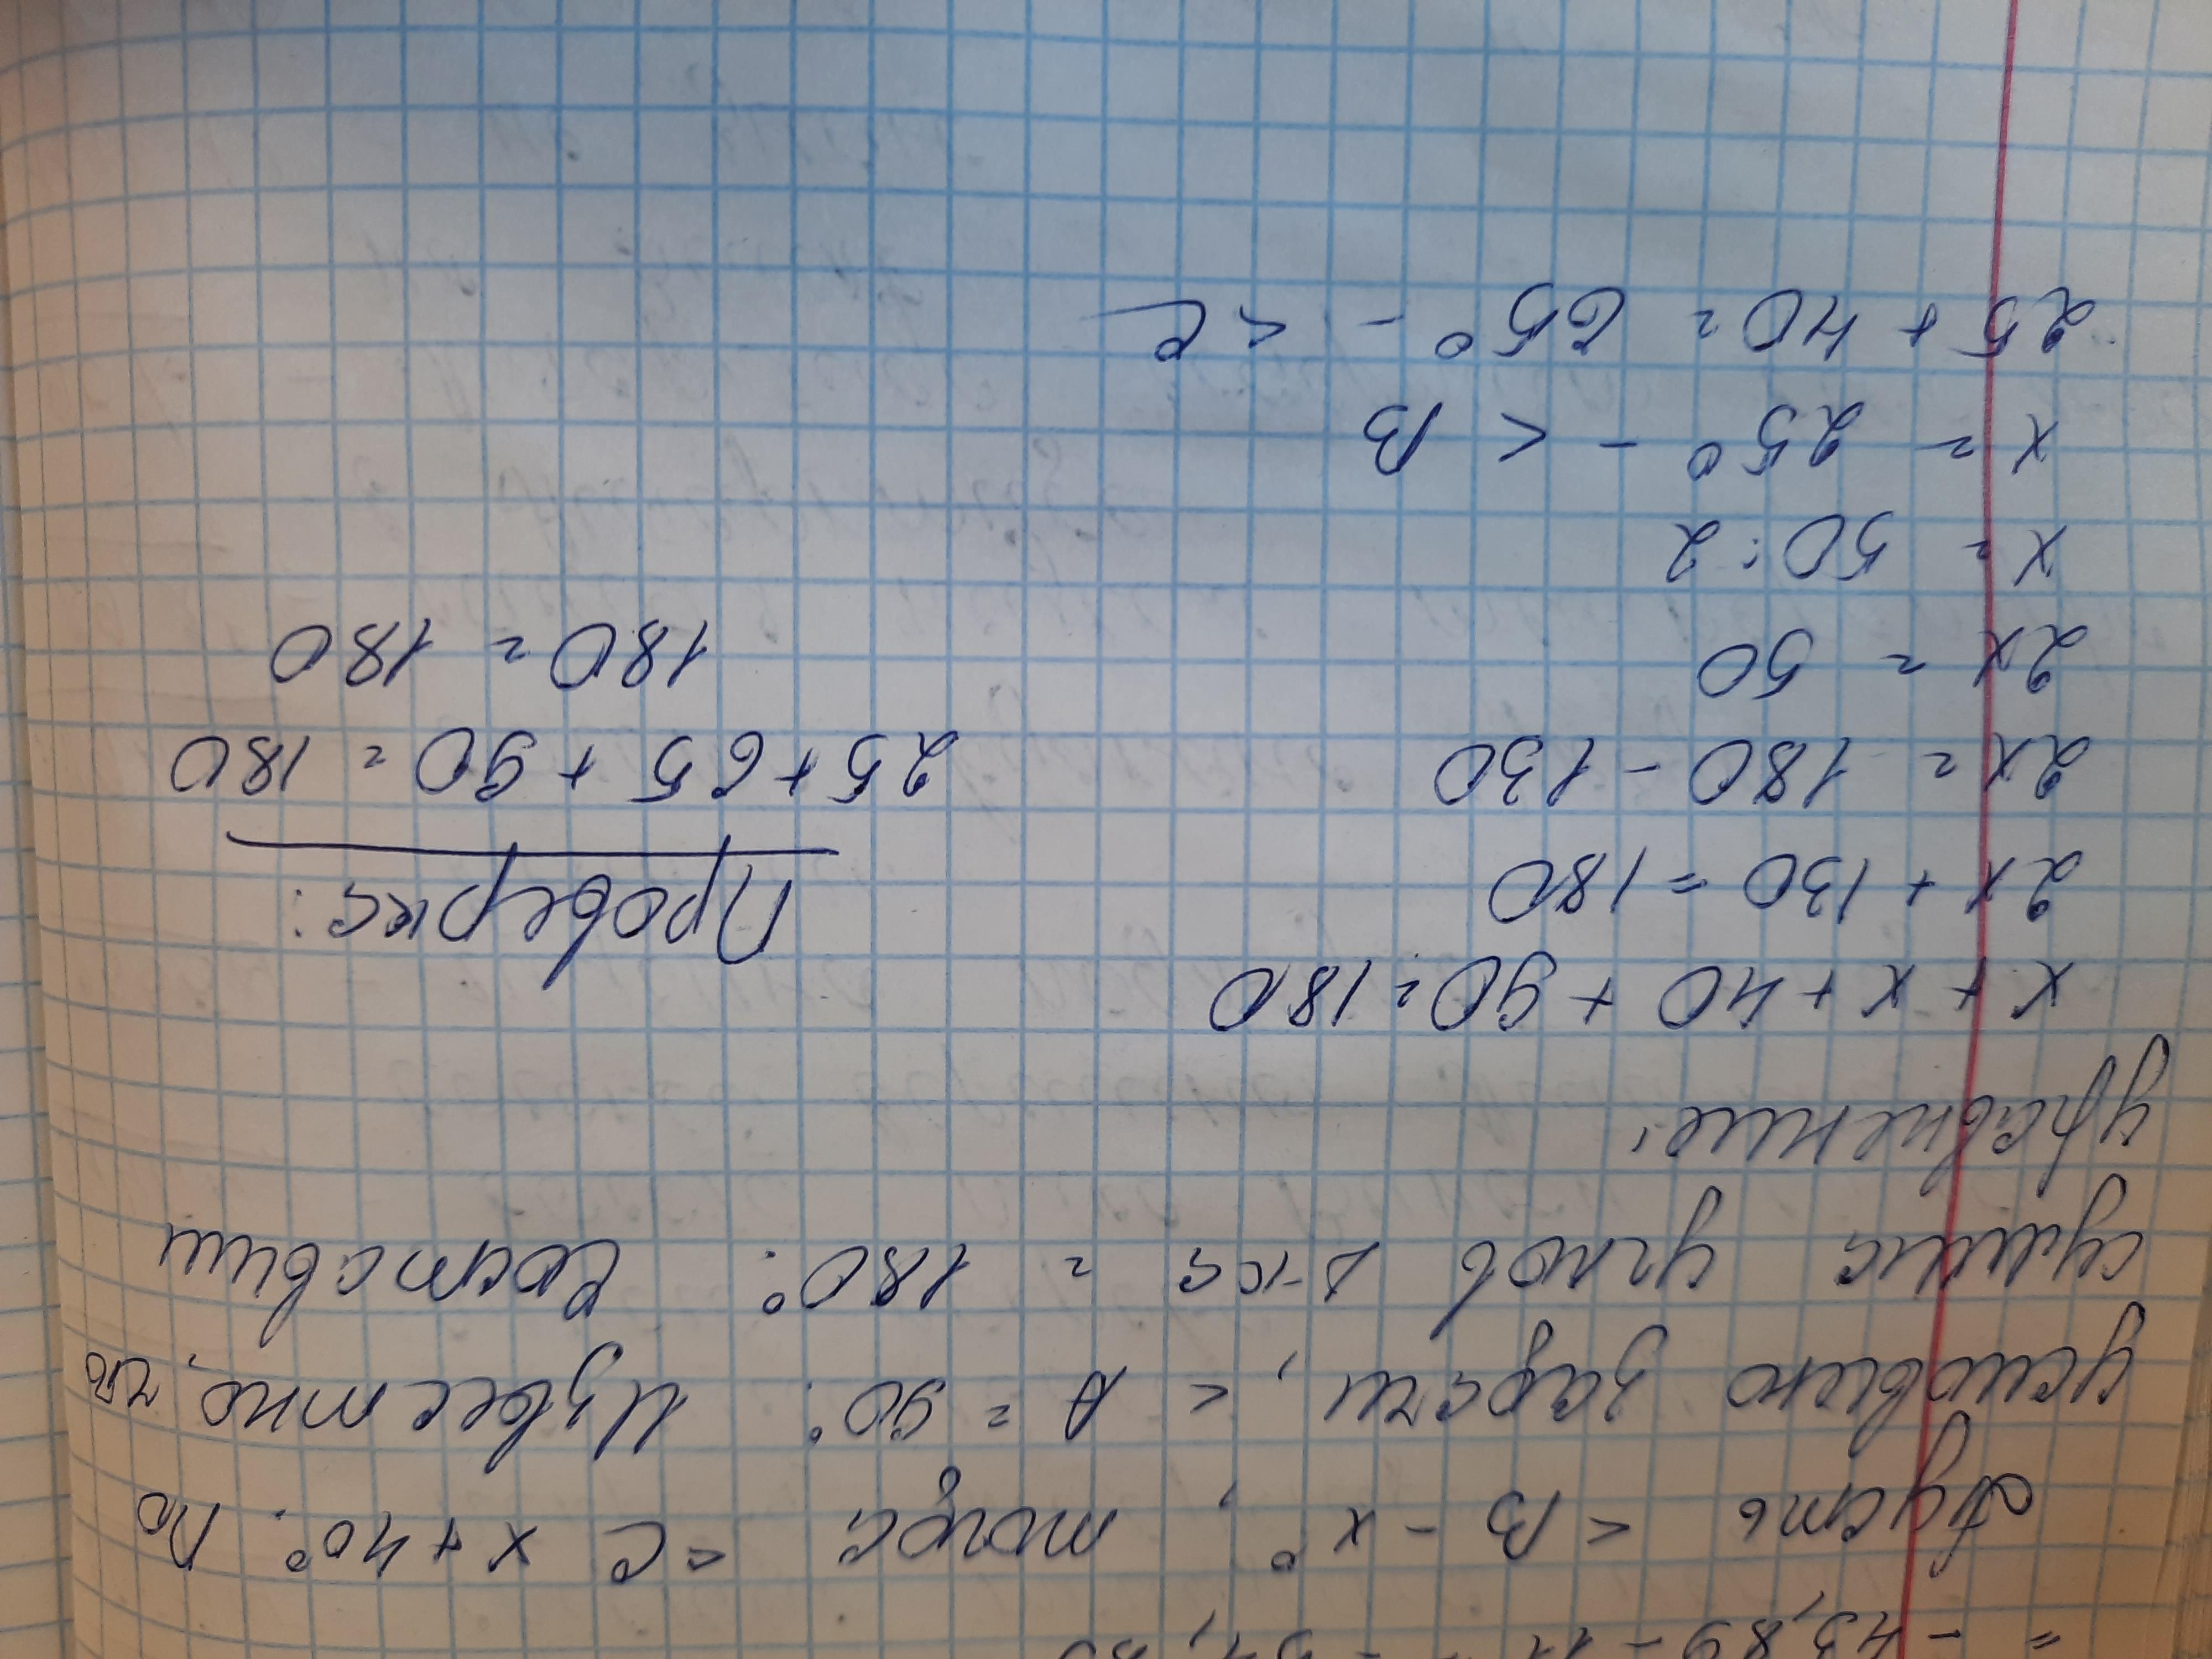 = -43,89 - 11
Пусть < B - x°, тогда <C x+40°. По
условию задачи, < A = 90°. Известно, что
сумма углов Δ-ка = 180°. Составим
уравнение:
x + x + 40 + 90 = 180
2x + 130 = 180
2x = 180 - 130
2x = 50
x = 50 : 2
x = 25° - < B
25 + 40 = 65° - < C
Проверка:
25 + 65 + 90 = 180
180 = 180